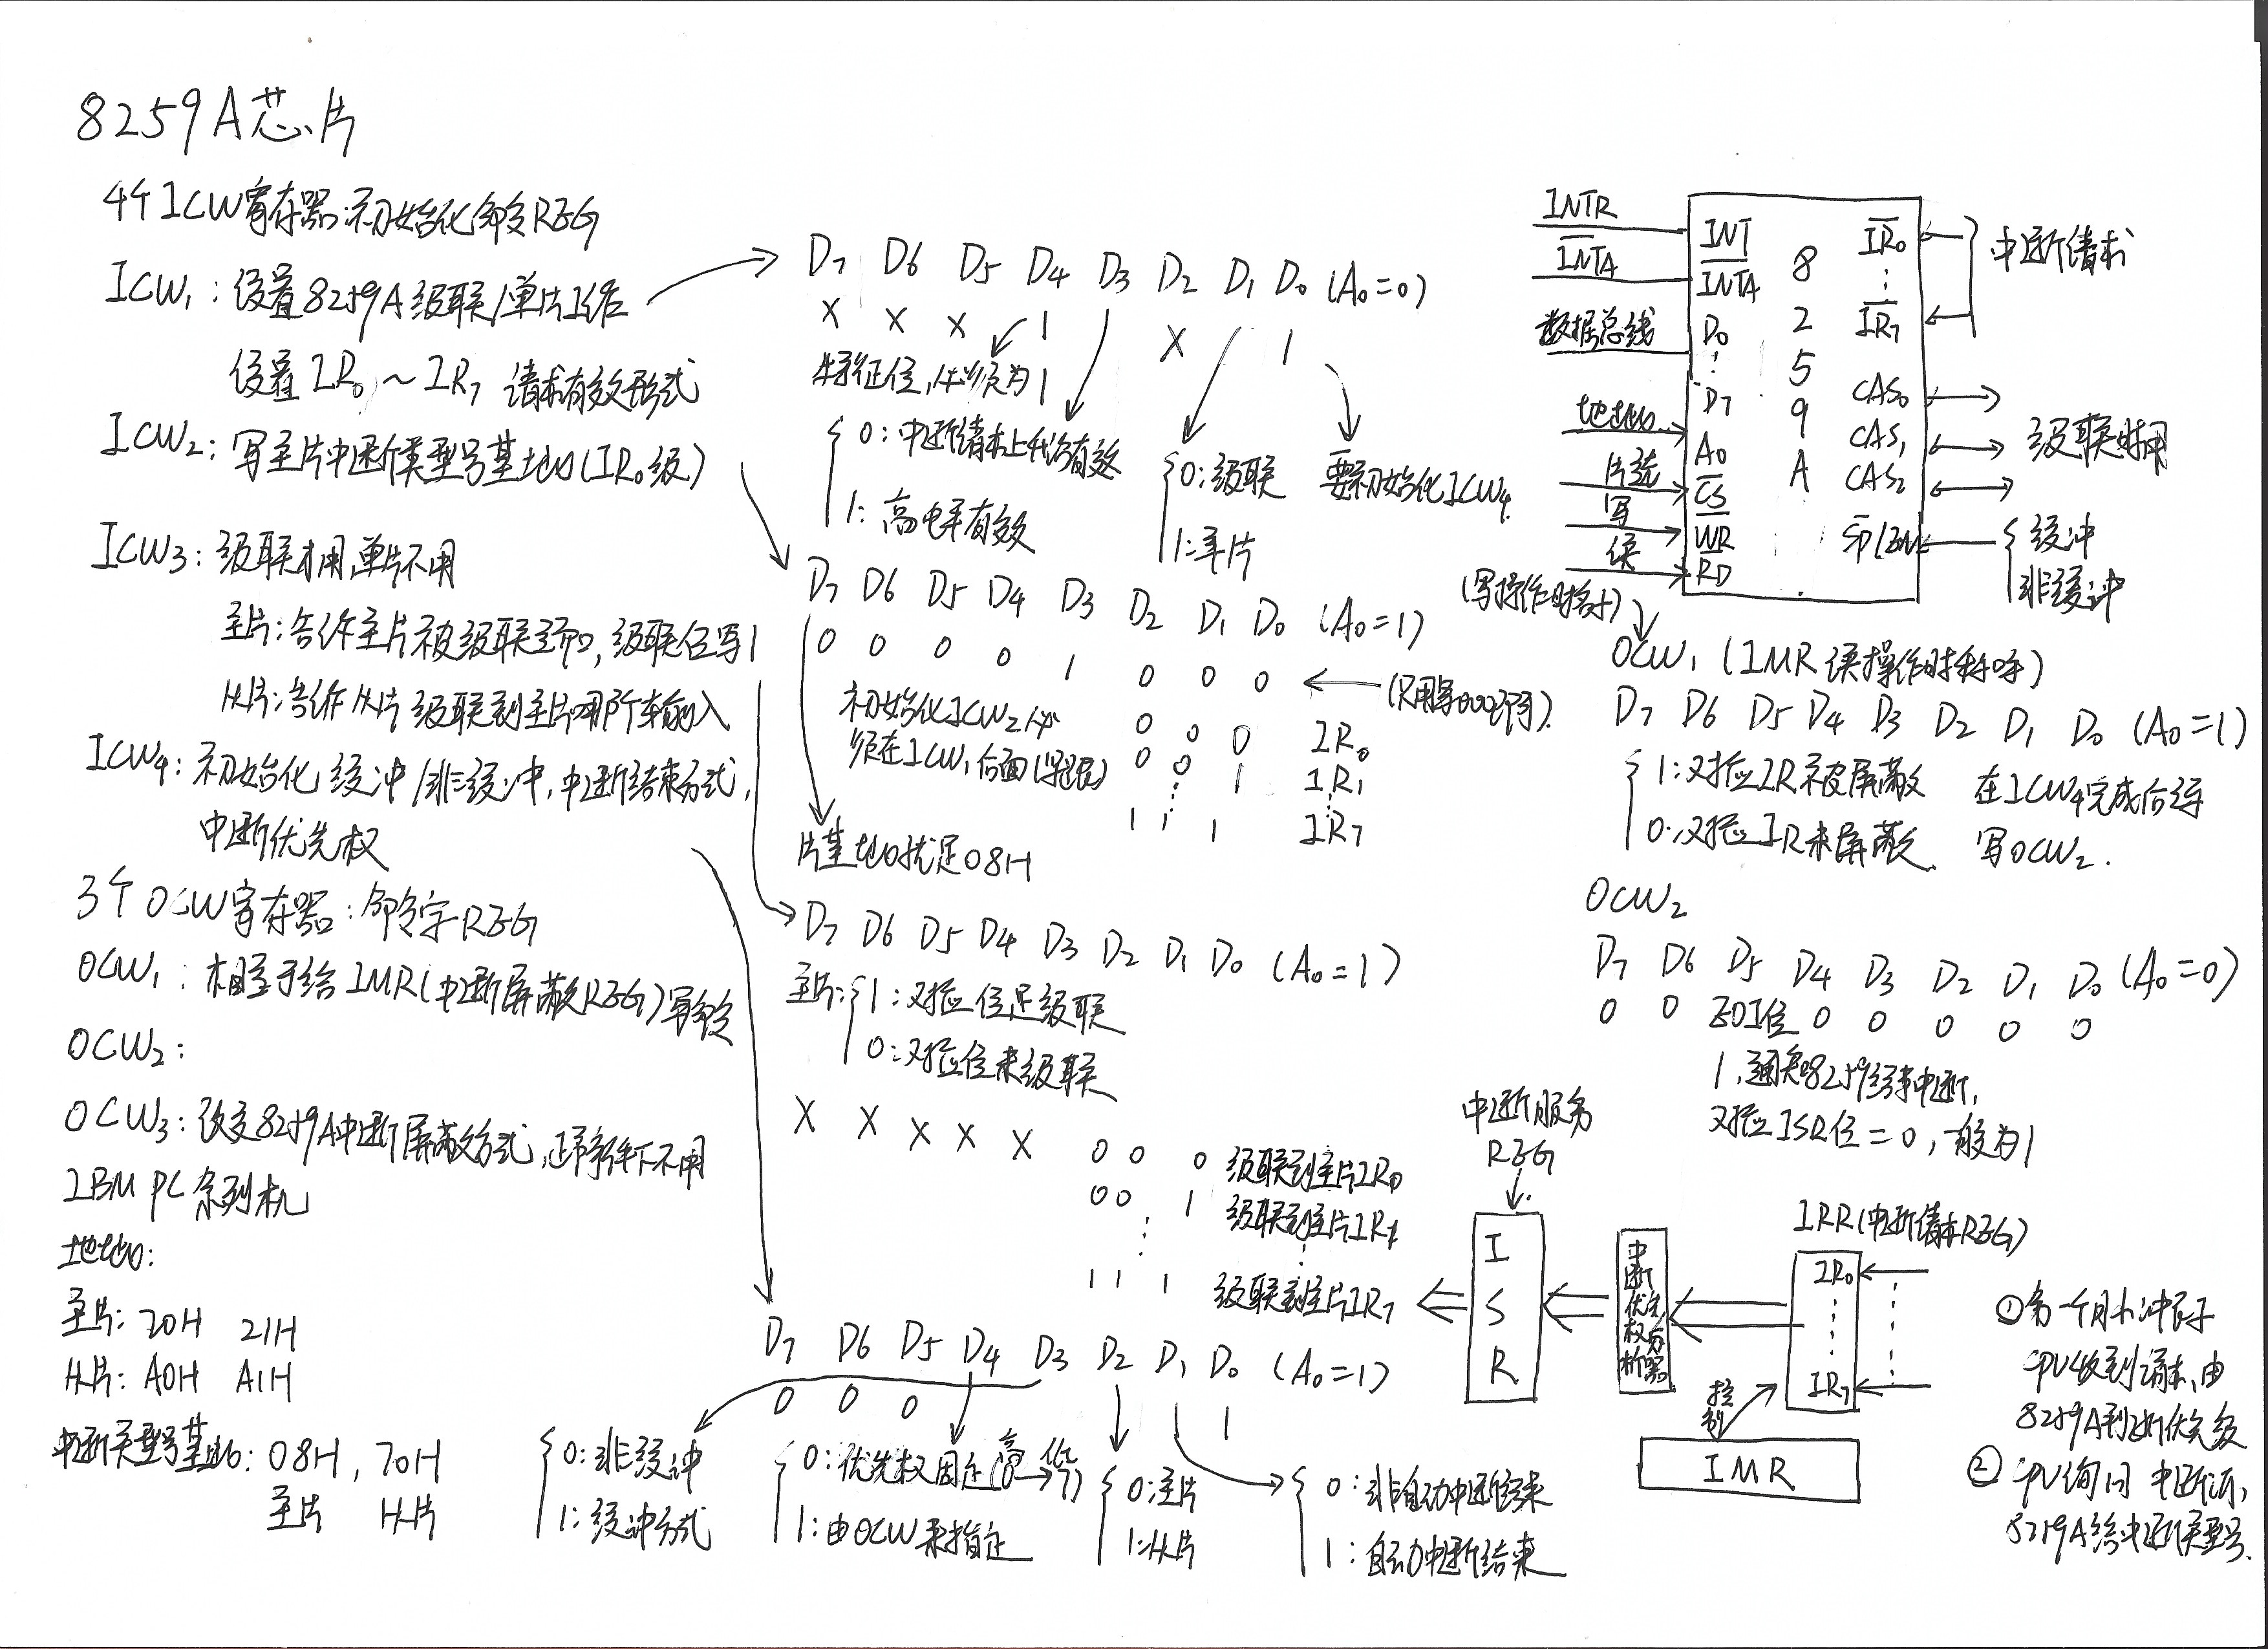 8259A芯片
4个ICW寄存器:初始化命令REG
ICW1:设置8259A级联/单片工作
设置IR0~IR7 请求有效形式
ICW2:写主片中断类型号基地(IR0级)
ICW3:级联才用,单片不用
主片:告诉主片被级联了,级联位写1
从片:告诉从片级联到主片哪个输入
ICW4:初始化 缓冲/非缓冲,中断结束方式,
中断优先权
3个OCW寄存器:命令字REG
OCW1:相当于给IMR(中断屏蔽REG)写命令
OCW2:
OCW3:改变8259A中断屏蔽方式,正常条件下不用
IBM PC系列机
地址:
主片:20H 21H
从片:A0H A1H
中断类型号基地:08H,70H
主片 从片
D7 D6 D5 D4 D3 D2 D1 D0 (A0=0)
X X X 1 X 1
特征位,必须为1
0:中断请求上升沿有效
1:高电平有效
0:级联
1:单片
要初始化ICW4
D7 D6 D5 D4 D3 D2 D1 D0 (A0=1)
0 0 0 0 1 0 0 0 (只用写000即可)
初始化ICW2必
须在ICW1后面(紧跟)
0 0 0 IR0
0 0 1 IR1
1 1 1 IR7
片基地就是08H
D7 D6 D5 D4 D3 D2 D1 D0 (A0=1)
主片:1:对应位是级联
0:对应位未级联
X X X X X 0 0 0 级联到主片IR0
0 0 1 级联到主片IR1
1 1 1 级联到主片IR7
D7 D6 D5 D4 D3 D2 D1 D0 (A0=1)
0 0 0 1
0:非缓冲
1:缓冲方式
0:优先权固定(高0→低7)
1:由OCW来指定
0:主片
1:从片
0:非自动中断结束
1:自动中断结束
INTR
INTA
数据总线
地址
片选
写
读
INT
INTA
D0
D7
A0
CS
WR
RD
8
2
5
9
A
IR0
IR7
CAS0
CAS1
CAS2
SP/EN
中断请求
级联时用
缓冲
非缓冲
(写操作时称呼)
OCW1(IMR 读操作时称呼)
D7 D6 D5 D4 D3 D2 D1 D0 (A0=1)
1:对应IR被屏蔽
0:对应IR未屏蔽
在ICW4完成后写
写OCW2.
OCW2
D7 D6 D5 D4 D3 D2 D1 D0 (A0=0)
0 0 EOI位 0 0 0 0 0
1,通知8259结束中断,
对应ISR位=0,一般为1
中断服务
REG
I
S
R
中断优先权分析器
IRR(中断请求REG)
IR0
IR7
控制
IMR
①第一个脉冲表示
CPU收到请求,由
8259A判断优先级
②CPU询问 中断源,
8259A给中断类型号.